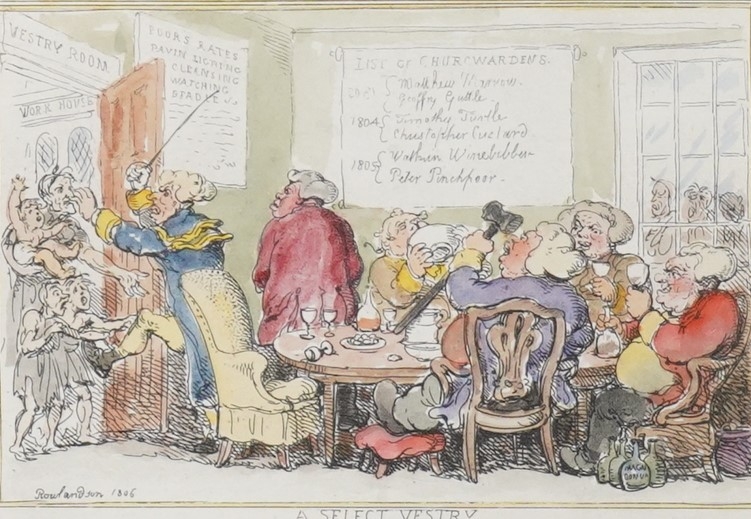 VESTRY ROOM
WORK HOUSE
POORS RATES
PAVIN LIGHING
CLEANSING
WATCHING
BEADLE
LIST OF CHURCWARDENS.
Matthew
Geoffry Guttle
1804 Timothy Turtle
Christopher
1805 Winebibber
Peter Pinchpoor
Rowlandson 1806
A SELECT VESTRY